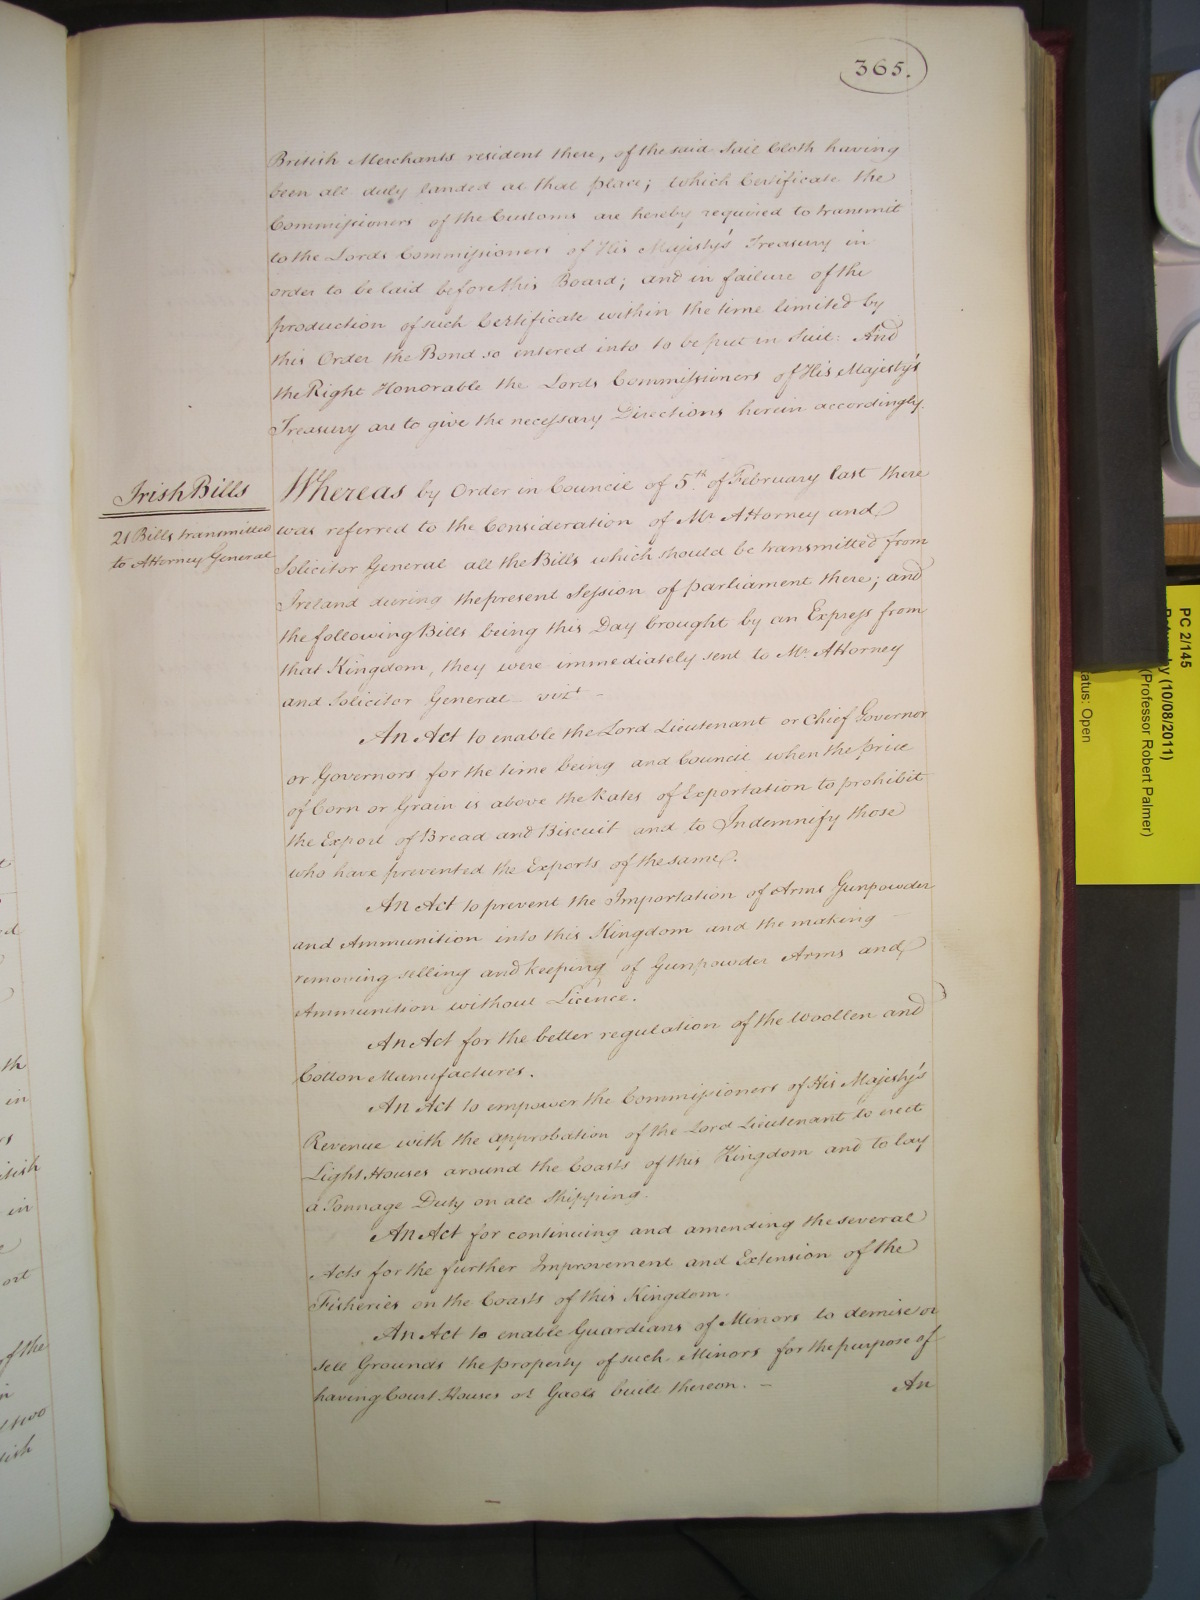 365.
British Merchants resident there, of the said Sail Cloth having
been all duly landed at that place; which Certificate the
Commissioners of the Customs are hereby required to transmit
to the Lords Commissioners of His Majesty's Treasury in
order to be laid before this Board; and in failure of the
production of such Certificate within the time limited by
this Order the Bond so entered into to be put in Suit. And
the Right Honorable the Lords Commissioners of His Majesty's
Treasury are to give the necessary Directions herein accordingly.
Irish Bills
21 Bills transmitted
to Attorney General
Whereas by Order in Council of 5th. of February last there
was referred to the Consideration of Mr Attorney and
Solicitor General all the Bills which should be transmitted from
Ireland during the present Session of parliament there; and
the following Bills being this Day brought by an Express from
that Kingdom, they were immediately sent to Mr. Attorney
and Solicitor General vizt –
An Act to enable the Lord Lieutenant or Chief Governor
or Governors for the time being and Council when the price
of Corn or Grain is above the Rates of Exportation to prohibit
the Export of Bread and Biscuit and to Indemnify those
who have prevented the Exports of the same.
An Act to prevent the Importation of Arms Gunpowder
and Ammunition into this Kingdom and the making
removing selling and keeping of Gunpowder Arms and
Ammunition without Licence.
An Act for the better regulation of the Woollen and
Cotton Manufactures.
An Act to empower the Commissioners of His Majesty's
Revenue with the approbation of the Lord Lieutenant to erect
Light Houses around the Coasts of this Kingdom and to lay
a Tonnage Duty on all Shipping.
An Act for continuing and amending the several
Acts for the further Improvement and Extension of the
Fisheries on the Coasts of this Kingdom.
An Act to enable Guardians of Minors to demise or
sell Grounds the property of such Minors for the purpose of
having Court Houses or Gaols built thereon. –
An
PC 2/145
by (10/08/2011)
(Professor Robert Palmer)
atus: Open
th
in
itish
in
of the